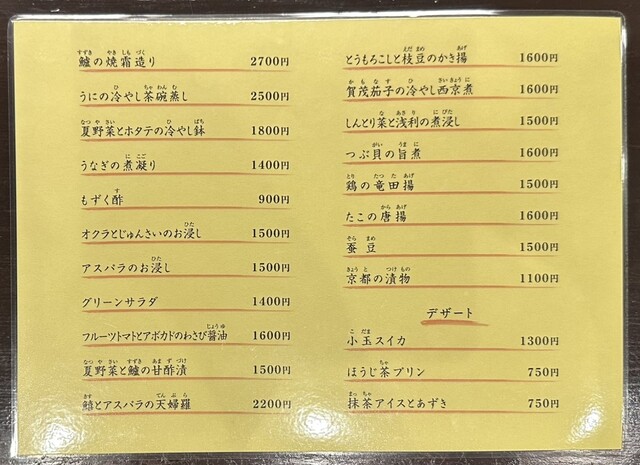 鱸の焼霜造り 2700円
うにの冷やし茶碗蒸し 2500円
夏野菜とホタテの冷やし鉢 1800円
うなぎの煮凝り 1400円
もずく酢 900円
オクラとじゅんさいのお浸し 1500円
アスパラのお浸し 1500円
グリーンサラダ 1400円
フルーツトマトとアボカドのわさび醤油 1600円
夏野菜と鱸の甘酢漬 1500円
鱚とアスパラの天婦羅 2200円
とうもろこしと枝豆のかき揚 1600円
賀茂茄子の冷やし西京煮 1600円
しんとり菜と浅利の煮浸し 1500円
つぶ貝の旨煮 1600円
鶏の竜田揚 1500円
たこの唐揚 1600円
蚕豆 1500円
京都の漬物 1100円
デザート
小玉スイカ 1300円
ほうじ茶プリン 750円
抹茶アイスとあずき 750円